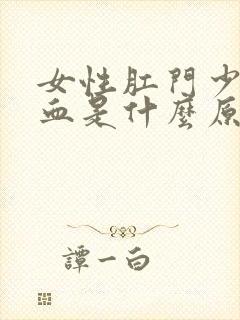 女性肛門少
血是什麼原
譚一白